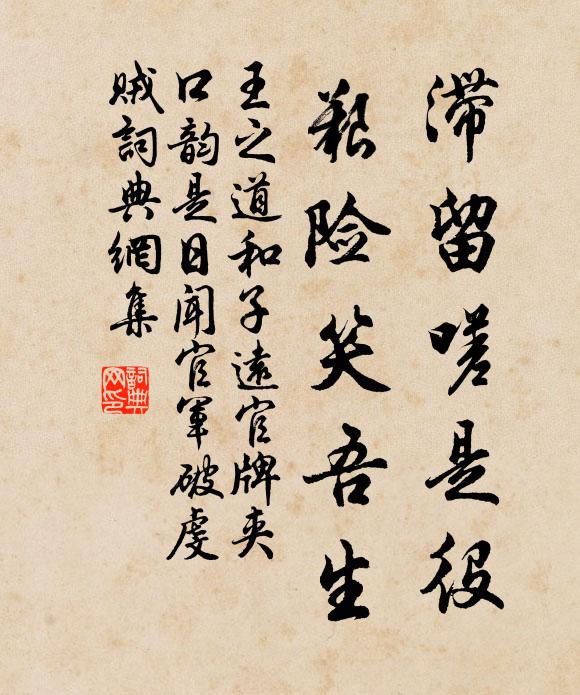 滞留嗟是役
艰险笑吾生
王之道和子遠官牌夹
口韵是日闻官軍破虔
贼詞典網集
詞典網印